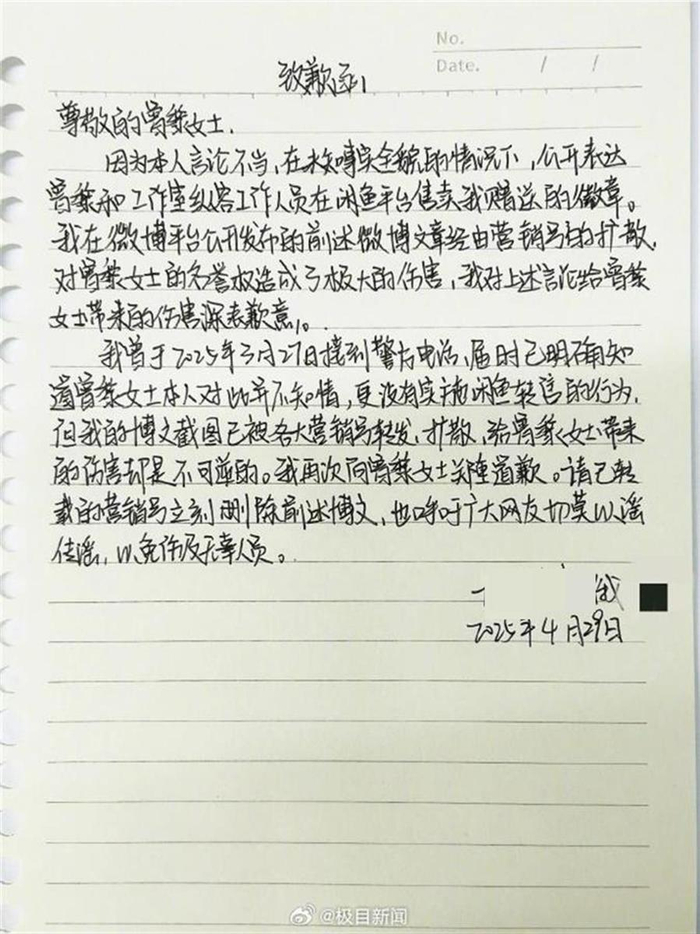 No.
Date. / /
致歉函
尊敬的曾黎女士,
因为本人言论不当,在未窥全貌的情况下,公开表达
曾黎和工作室纵容工作人员在闲鱼平台售卖我赠送的徽章。
我在微博平台公开发布的前述微博文章经由营销号的扩散,
对曾黎女士的名誉权造成了极大的伤害,我对上述言论给曾黎
女士带来的伤害深表歉意。
我曾于2025年3月27日接到警方电话,届时已明确知
道曾黎女士本人对此并不知情,更没有实施闲鱼转售的行为,
但我的博文截图已被各大营销号转发、扩散,给曾黎女士带来
的伤害却是不可逆的。我再次向曾黎女士郑重道歉。请已转
载的营销号立刻删除前述博文,也呼吁广大网友切莫以谣
传谣,以免伤及无辜人员。
2025年4月29日
@极目新闻